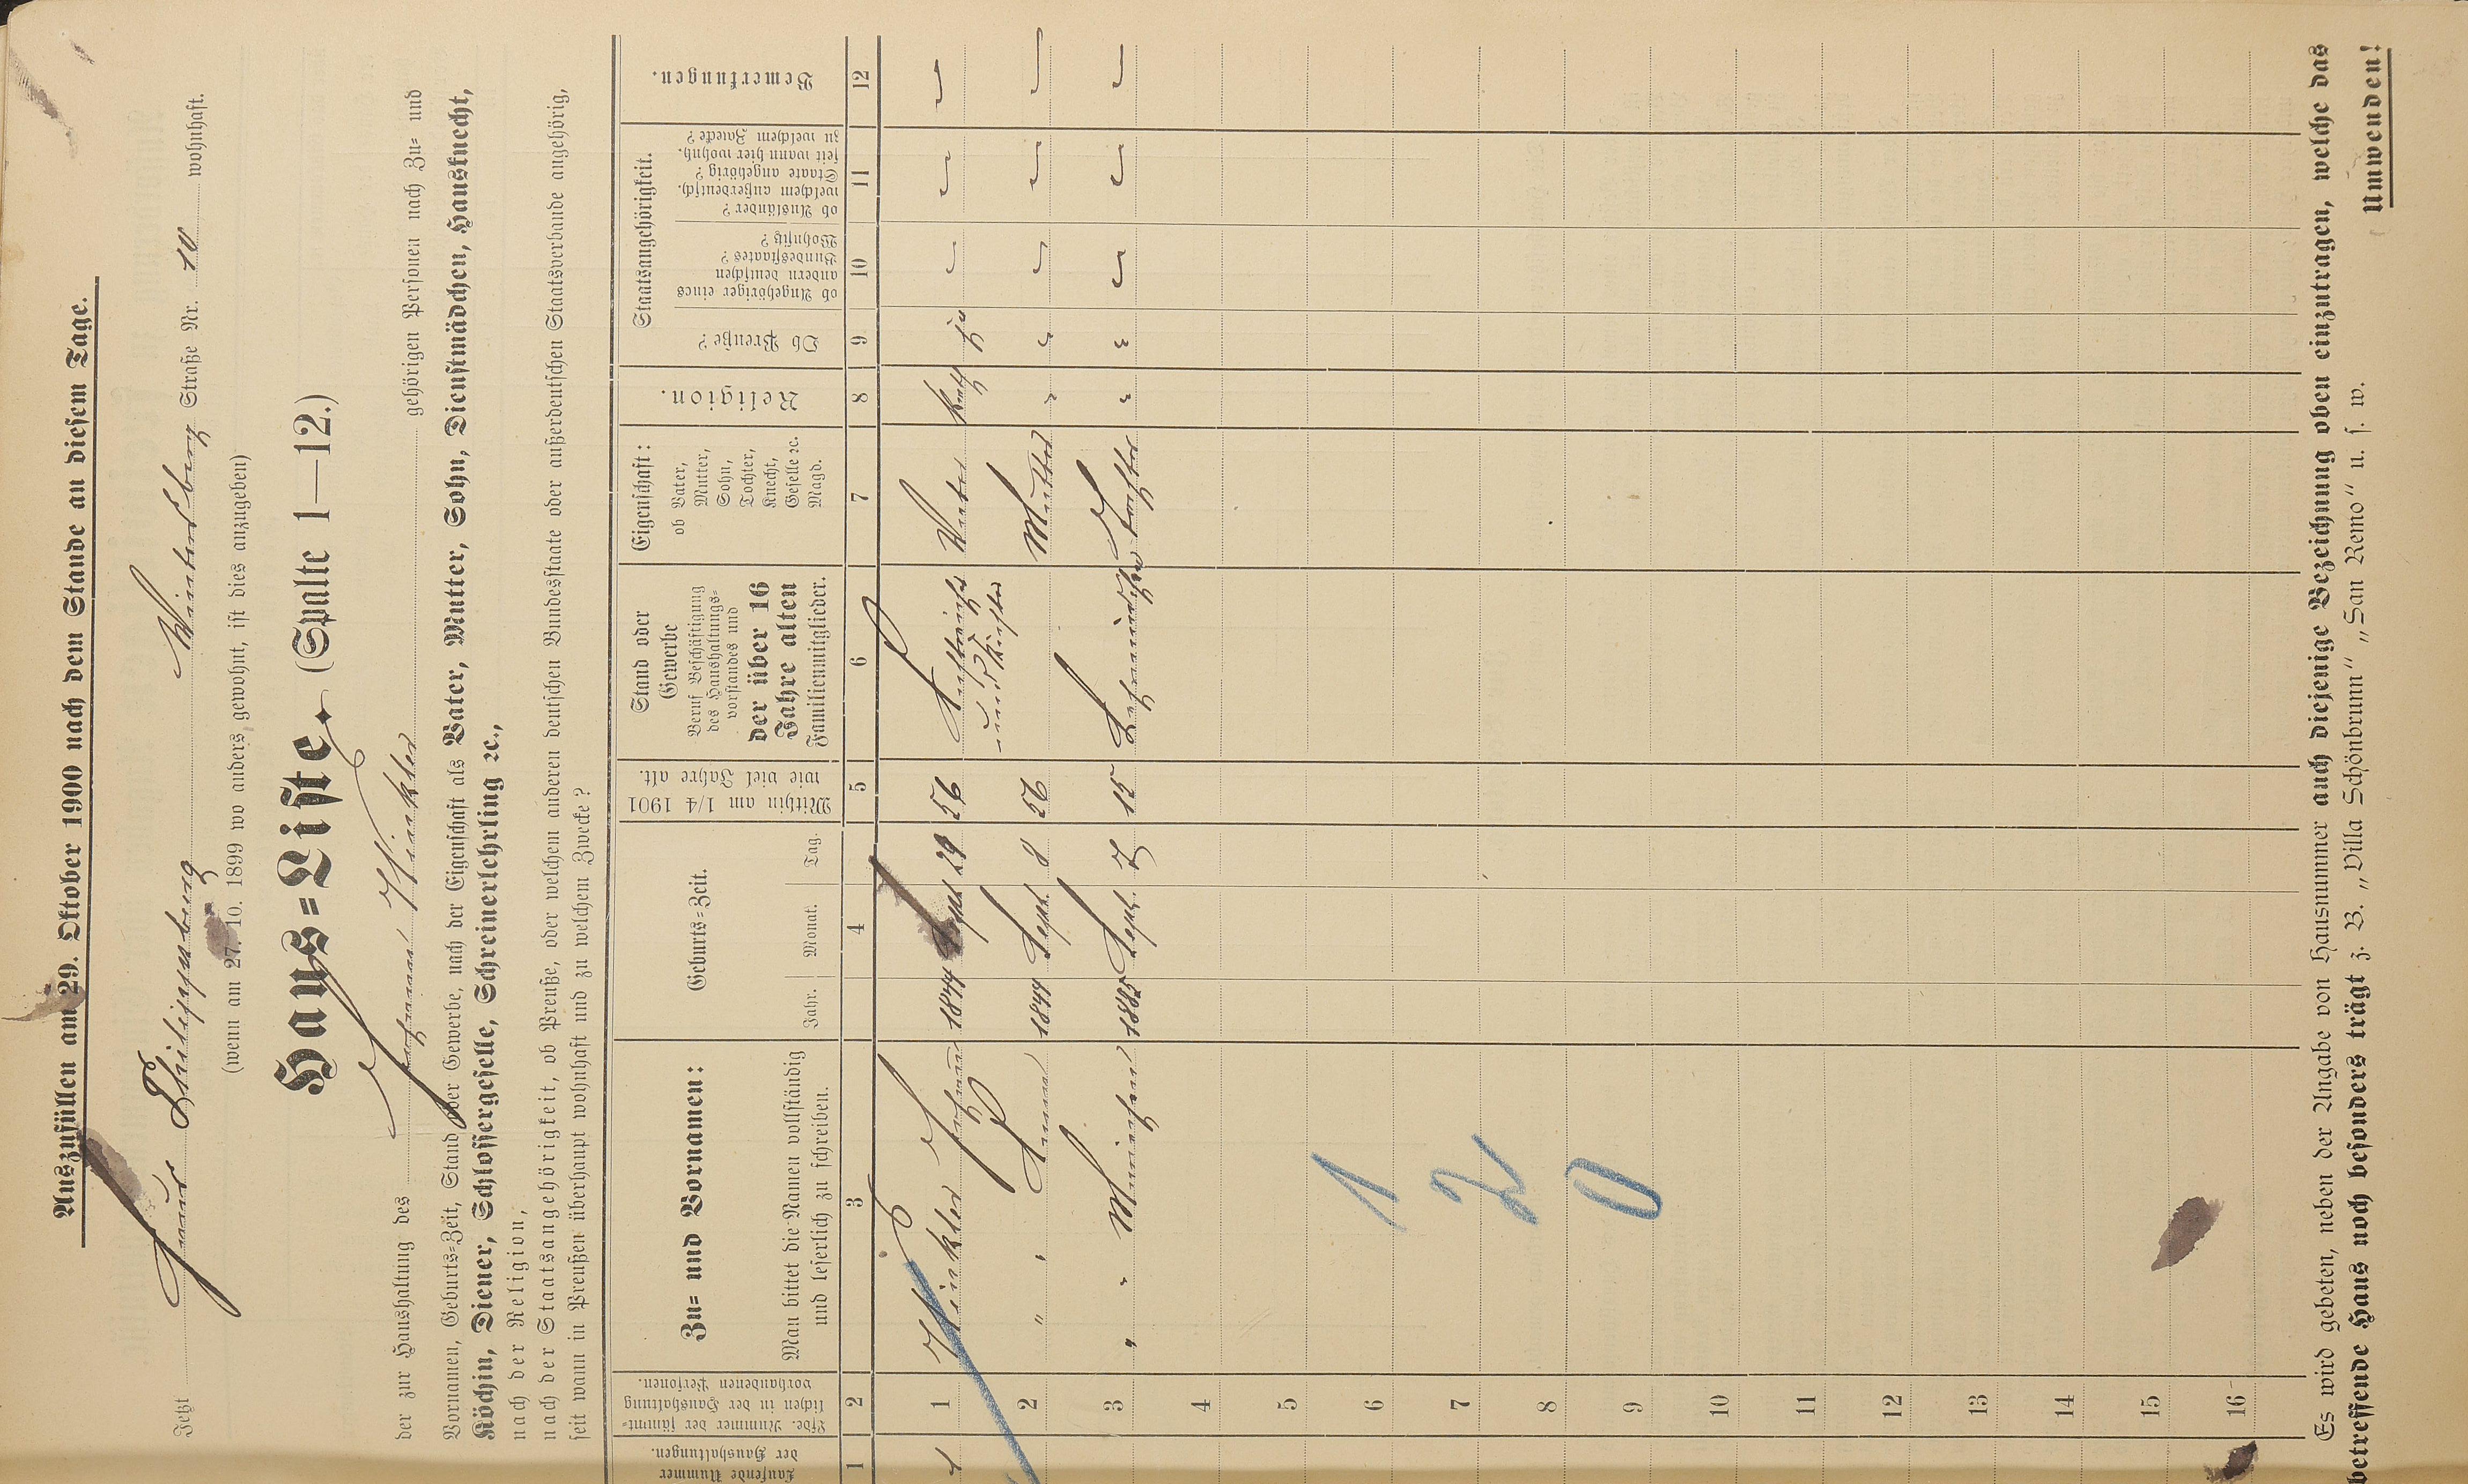 Auszufüllen am 29. Oktober 1900 nach dem Stande an diesem Tage.
Jetzt Haus Philippsburg Winterberg Straße Nr. 10 wohnhaft.
(wenn am 27. 10. 1899 wo anders gewohnt, ist dies anzugeben)
Haus=Liste (Spalte 1—12.)
der zur Haushaltung des Johann Winkler gehörigen Personen nach Zu= und
Vornamen, Geburts=Zeit, Stand oder Gewerbe, nach der Eigenschaft als Vater, Mutter, Sohn, Dienstmädchen, Hausknecht,
Köchin, Diener, Schlossergeselle, Schreinerlehrling ꝛc.,
nach der Religion,
nach der Staatsangehörigkeit, ob Preuße, oder welchem anderen deutschen Bundesstaate oder außerdeutschen Staatsverbande angehörig,
seit wann in Preußen überhaupt wohnhaft und zu welchem Zwecke?
Laufende Nummer der Haushaltungen.
Lfde. Nummer der sämmt=lichen in der Haushaltung vorhandenen Personen.
Zu= und Vornamen:
Man bittet die Namen vollständig
und leserlich zu schreiben.
Geburts=Zeit.
Jahr. Monat. Tag.
Mithin am 1/4 1901 wie viel Jahre alt.
Stand oder
Gewerbe
Beruf Beschäftigung
des Haushaltungs=
vorstandes und
der über 16
Jahre alten
Familienmitglieder.
Eigenschaft:
ob Vater,
Mutter,
Sohn,
Tochter,
Knecht,
Geselle ꝛc.
Magd.
Religion.
Staatsangehörigkeit.
Ob Preuße?
ob Angehöriger eines andern deutschen Bundesstaates? Wohnsitz?
ob Ausländer? welchem außerdeutsch. Staate angehörig? seit wann hier wohnh. zu welchem Zwecke?
Bemerkungen.
1 2 3 4 5 6 7 8 9 10 11 12
1 1 Winkler Johann 1844 Sept 29 56 Vater Kath ja
2 " " Anna 1844 Sept. 8 56 Mutter " "
3 " " 1885 Sept. 7 15 Tochter " "
4
5
6
7
8
9
10
11
12
13
14
15
16
1
2
0
Es wird gebeten, neben der Angabe von Hausnummer auch diejenige Bezeichnung oben einzutragen, welche das
betreffende Haus noch besonders trägt z. B. „Villa Schönbrunn“ „San Remo“ u. s. w.
Umwenden!